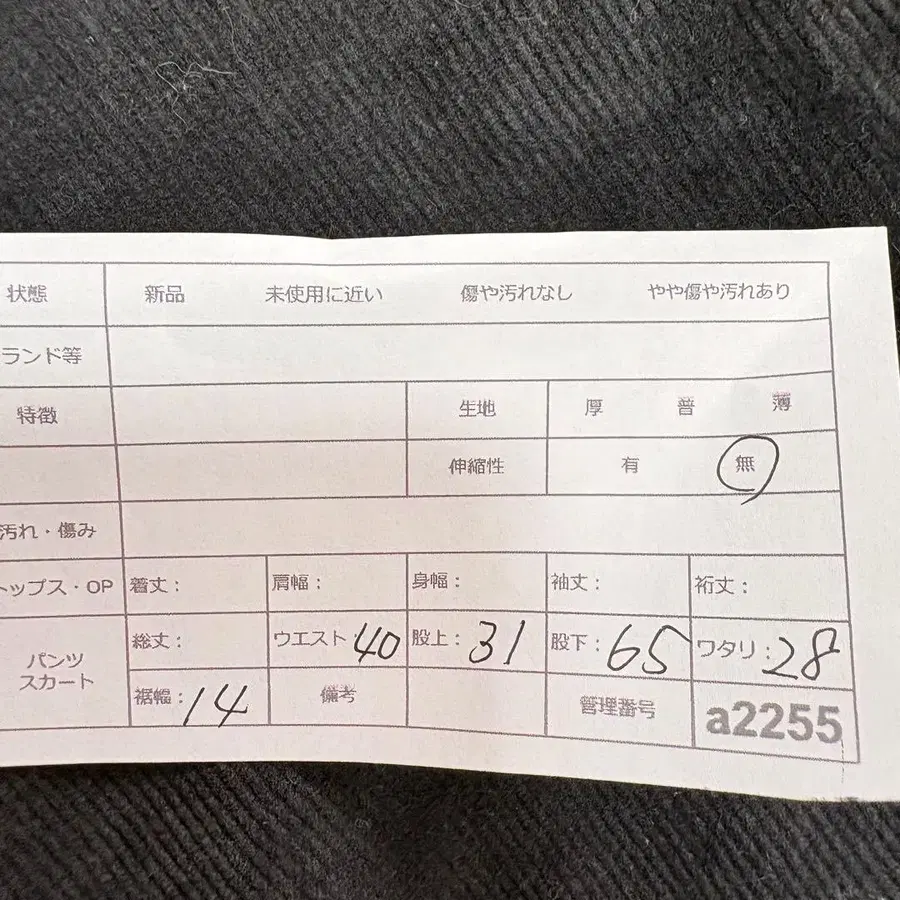 状態 新品 未使用に近い 傷や汚れなし やや傷や汚れあり
ランド等
特徴 生地 厚 普 薄
伸縮性 有 無
汚れ・傷み
トップス・OP 着丈: 肩幅: 身幅: 袖丈: 裄丈:
パンツ スカート 総丈: ウエスト:40 股上:31 股下:65 ワタリ:28
裾幅:14 備考 管理番号 a2255